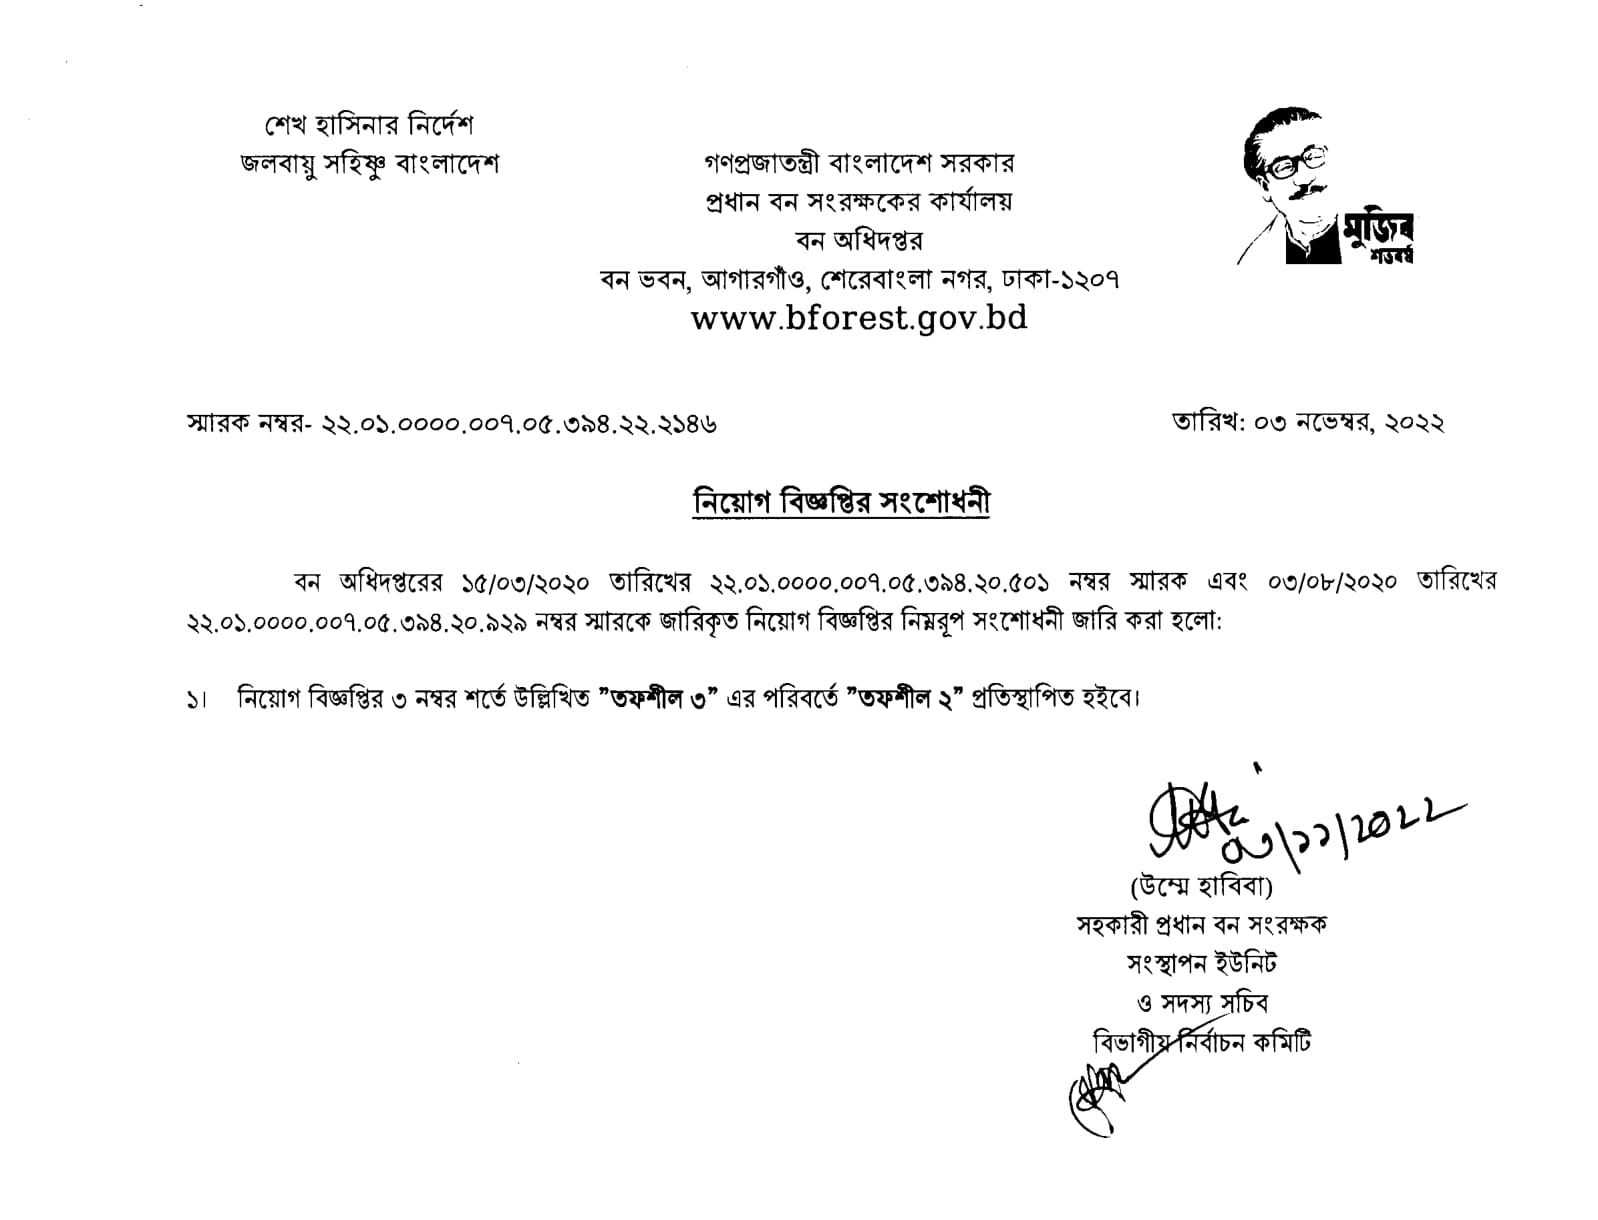 শেখ হাসিনার নির্দেশ
জলবায়ু সহিষ্ণু বাংলাদেশ
গণপ্রজাতন্ত্রী বাংলাদেশ সরকার
প্রধান বন সংরক্ষকের কার্যালয়
বন অধিদপ্তর
বন ভবন, আগারগাঁও, শেরেবাংলা নগর, ঢাকা-১২০৭
www.bforest.gov.bd
মুজিব
শতবর্ষ
স্মারক নম্বর- ২২.০১.০০০০.০০৭.০৫.৩৯৪.২২.২১৪৬
তারিখ: ০৩ নভেম্বর, ২০২২
নিয়োগ বিজ্ঞপ্তির সংশোধনী
বন অধিদপ্তরের ১৫/০৩/২০২০ তারিখের ২২.০১.০০০০.০০৭.০৫.৩৯৪.২০.৫০১ নম্বর স্মারক এবং ০৩/০৮/২০২০ তারিখের
২২.০১.০০০০.০০৭.০৫.৩৯৪.২০.৯২৯ নম্বর স্মারকে জারিকৃত নিয়োগ বিজ্ঞপ্তির নিম্নরূপ সংশোধনী জারি করা হলো:
১। নিয়োগ বিজ্ঞপ্তির ৩ নম্বর শর্তে উল্লিখিত ”তফশীল ৩” এর পরিবর্তে ”তফশীল ২” প্রতিস্থাপিত হইবে।
০৩/১১/২০২২
(উম্মে হাবিবা)
সহকারী প্রধান বন সংরক্ষক
সংস্থাপন ইউনিট
ও সদস্য সচিব
বিভাগীয় নির্বাচন কমিটি